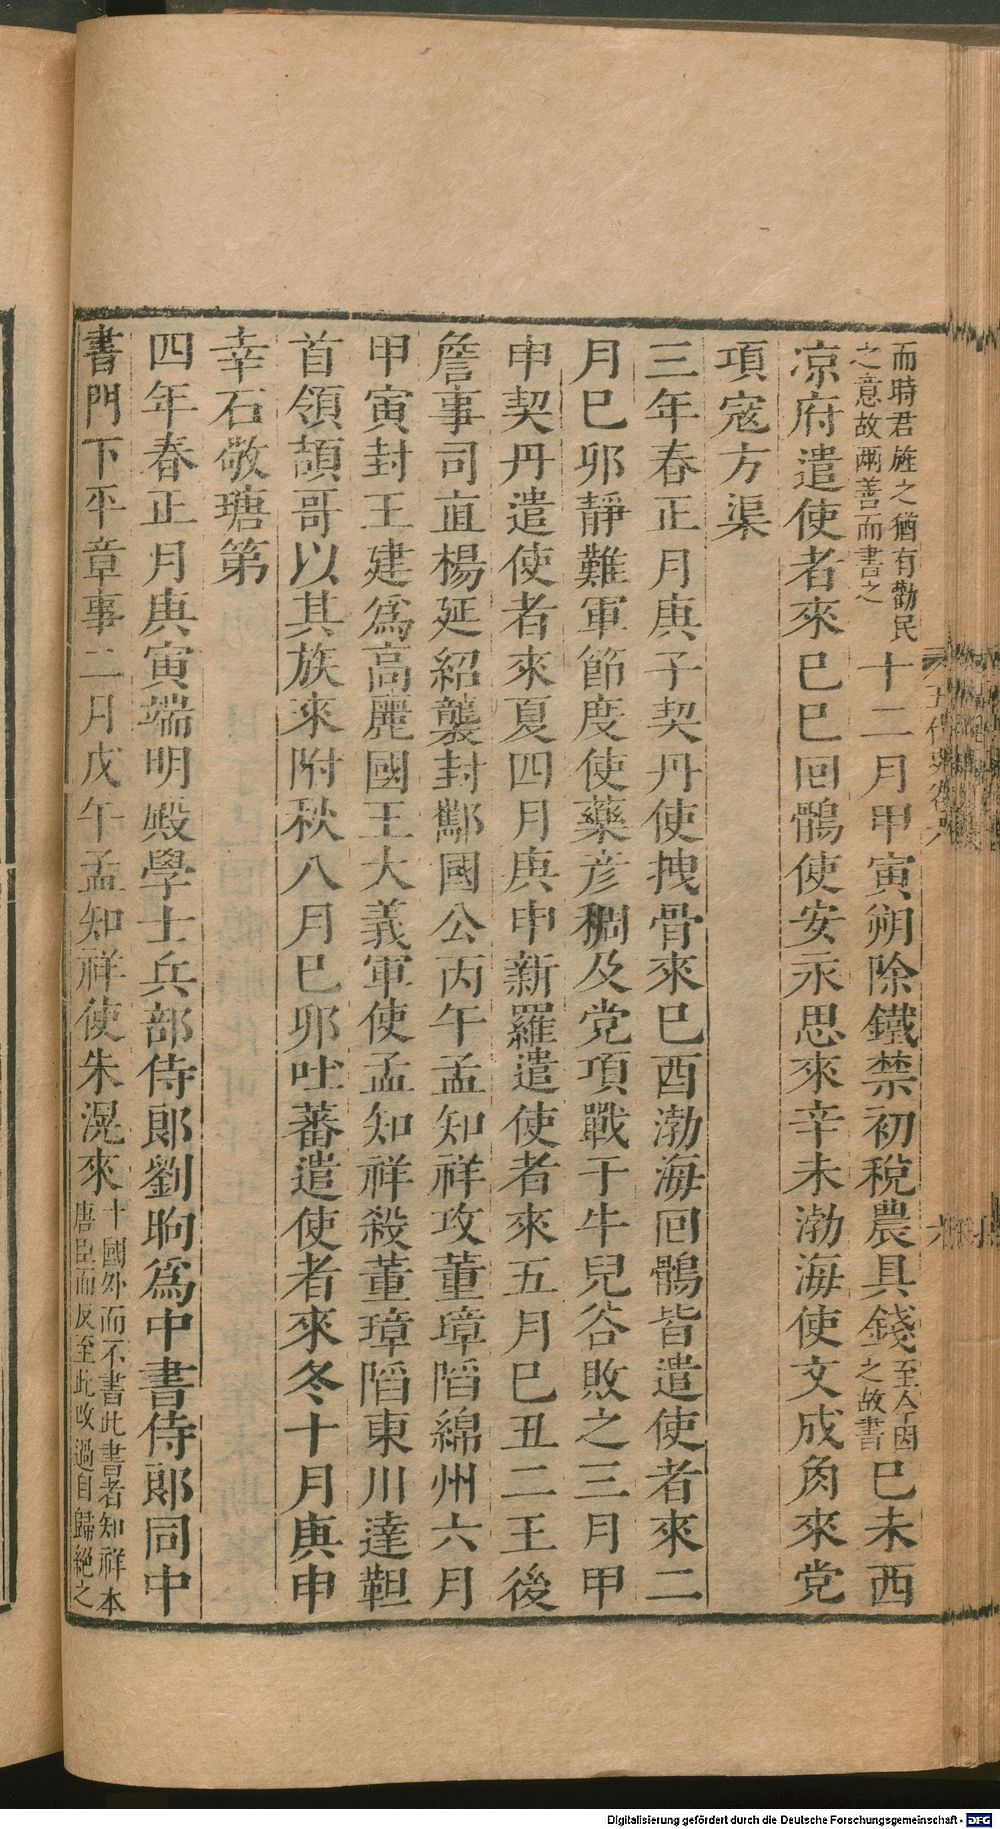 而時君旌之猶有勸民
之意故兩善而書之
十二月甲寅朔除鐵禁初稅農具錢
至今因
之故書
巳未西
凉府遣使者來巳巳回鶻使安永思來辛未渤海使文成角來党
項寇方渠
三年春正月庚子契丹使拽骨來巳酉渤海回鶻皆遣使者來二
月巳卯靜難軍節度使藥彦稠及党項戰于牛兒谷敗之三月甲
申契丹遣使者來夏四月庚申新羅遣使者來五月巳丑二王後
詹事司直楊延紹襲封酅國公丙午孟知祥攻董璋䧟綿州六月
甲寅封王建爲高麗國王大義軍使孟知祥殺董璋䧟東川達靼
首領頡哥以其族來附秋八月巳卯吐蕃遣使者來冬十月庚申
幸石敬瑭第
四年春正月庚寅端明殿學士兵部侍郎劉昫爲中書侍郎同中
書門下平章事二月戊午孟知祥使朱滉來
十國外而不書此書者知祥本
唐臣而反至此改過自歸絕之
五代史卷六
六
Digitalisierung gefördert durch die Deutsche Forschungsgemeinschaft - DFG